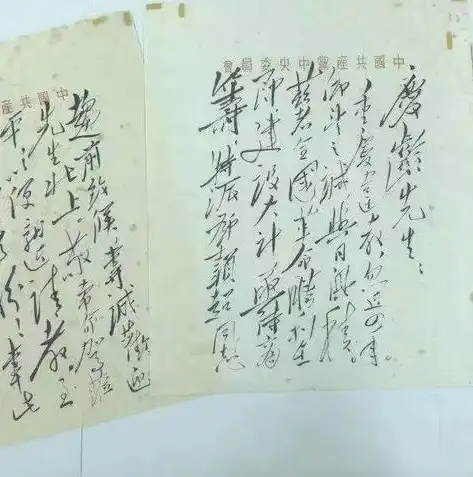 中國共產黨中央委員會
慶齡先生：
重慶違教忽近四年。
仰望之誠與日俱積。
茲者全國革命勝利在
即建設大計亟待商
籌，特派鄧穎超同志
中國共產
趨前致候專誠歡迎
先生北上敬希命駕蒞
平以便就近請教至
專此